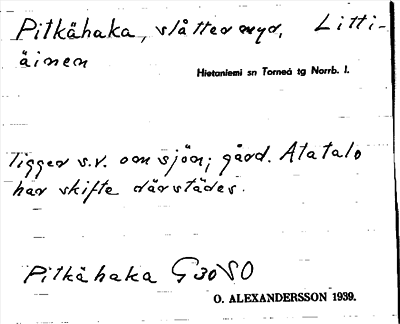 Pitkähaka, slåttermyr, Litti-
äinen
Hietaniemi sn Torneå tg Norrb. l.
Ligger s.v. om sjön; gård. Alatalo
har skifte därstädes.
Pitkähaka G30 SO
O. ALEXANDERSSON 1939.